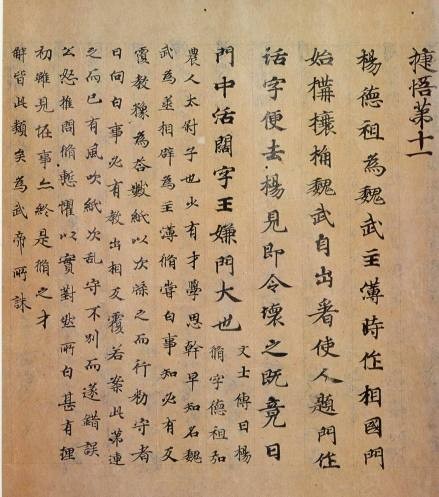 捷悟第十一
楊德祖為魏武主簿時作相國門
始構榱桷魏武自出看使人題門作
活字便去楊見即令壞之既竟曰
門中活闊字王嫌門大也
文士傳曰楊
脩字德祖弘
農人太尉子也少有才學思幹早知名魏
武為丞相辟為主簿脩嘗白事知必有反
覆教豫為荅數紙以次牒之而行勑守者
曰向白事必有教出相反覆若案此第連
之而已有風吹紙次乱守不別而遂錯誤
公怒推問脩慙懼以實對然所白甚有理
初雖見怪事亦終是脩之才
解皆此類矣為武帝所誅